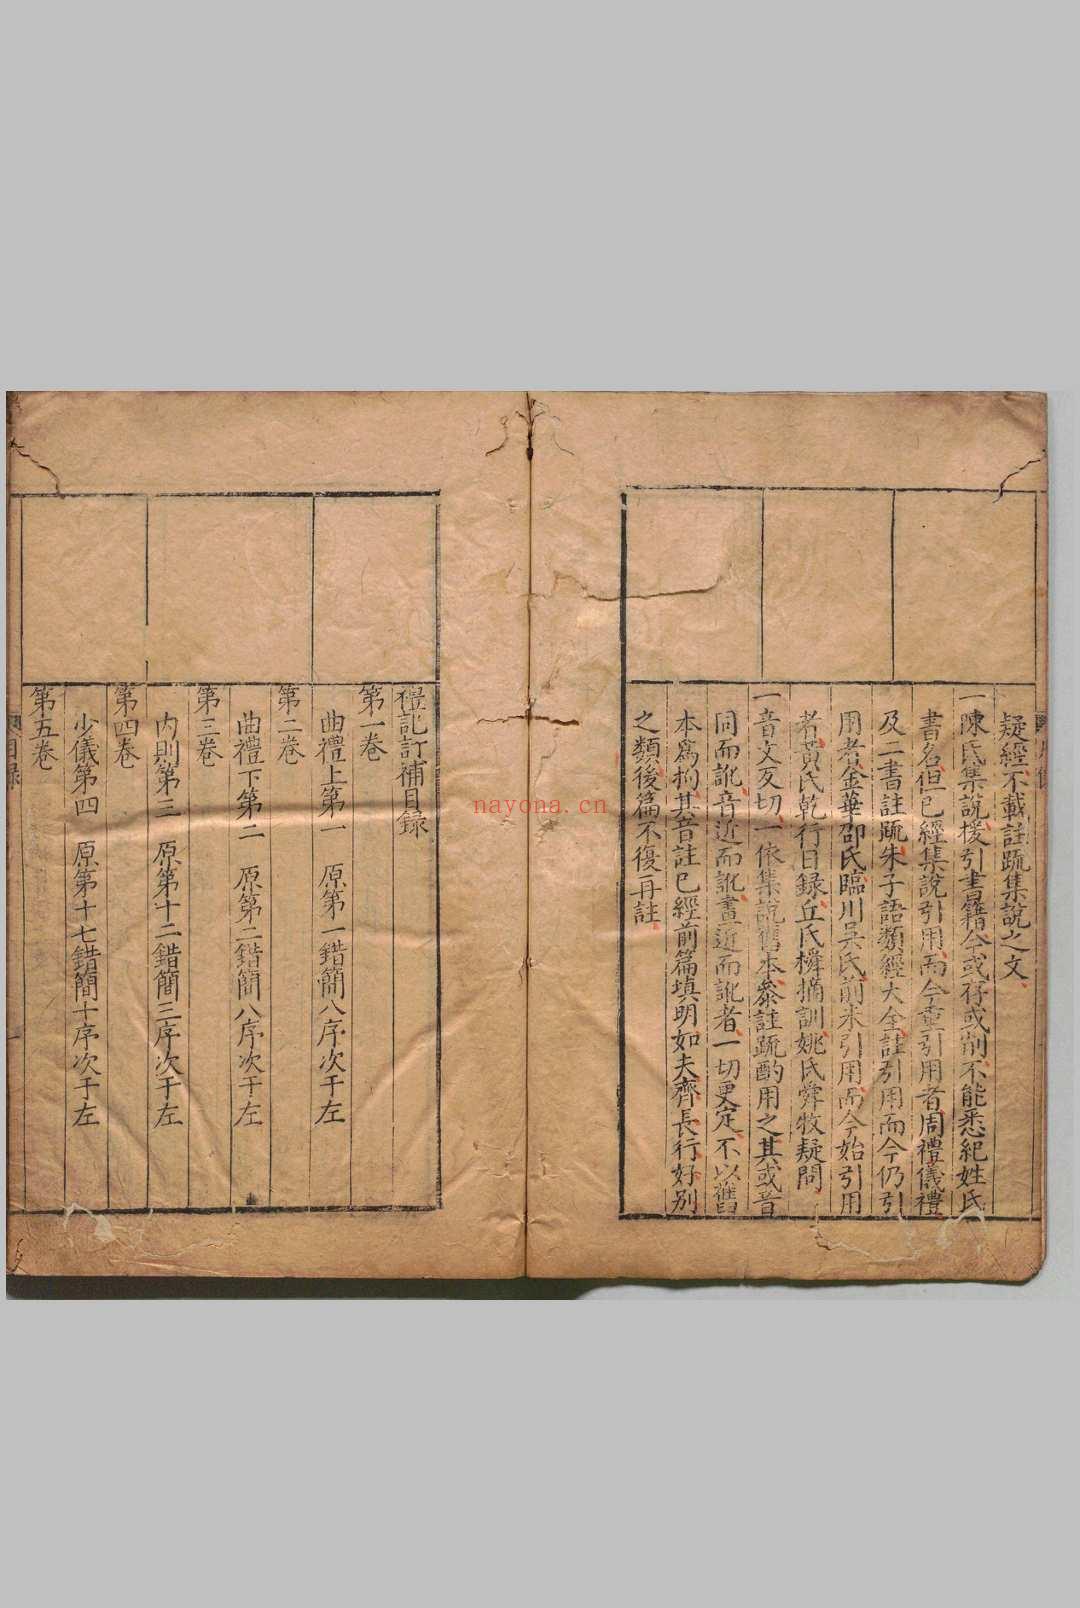 疑經不載註疏集說之文
一陳氏集說援引書籍今或存或削不能悉紀姓氏
書名但已經集說引用而今重引用者周禮儀禮
及二書註疏朱子語類經大全註引用而今仍引
用者金華邵氏臨川吳氏前未引用而今始引用
者黃氏乾行日録丘氏橓摘訓姚氏舜牧疑問
一音文反切一依集說舊本參註疏酌用之其或音
同而訛音近而訛畫近而訛者一切更定不以舊
本爲拘其音註已經前篇填明如夫齊長行好別
之類後篇不復再註
禮記訂補目録
第一卷
曲禮上第一　原第一錯簡八序次于左
第二卷
曲禮下第二　原第二錯簡八序次于左
第三卷
內則第三　原第十二錯簡三序次于左
第四卷
少儀第四　原第十七錯簡十序次于左
第五卷
目録
nayona.cn